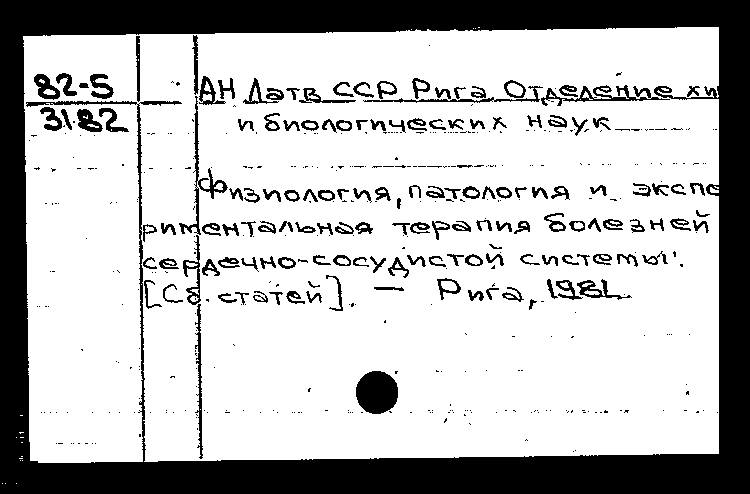 82-5
3182
АН Латв ССР Рига Отделение хи
и биологических наук
Физиология, патология и экспе
риментальная терапия болезней
сердечно-сосудистой системы.
[Сб. статей]. — Рига, 1981.